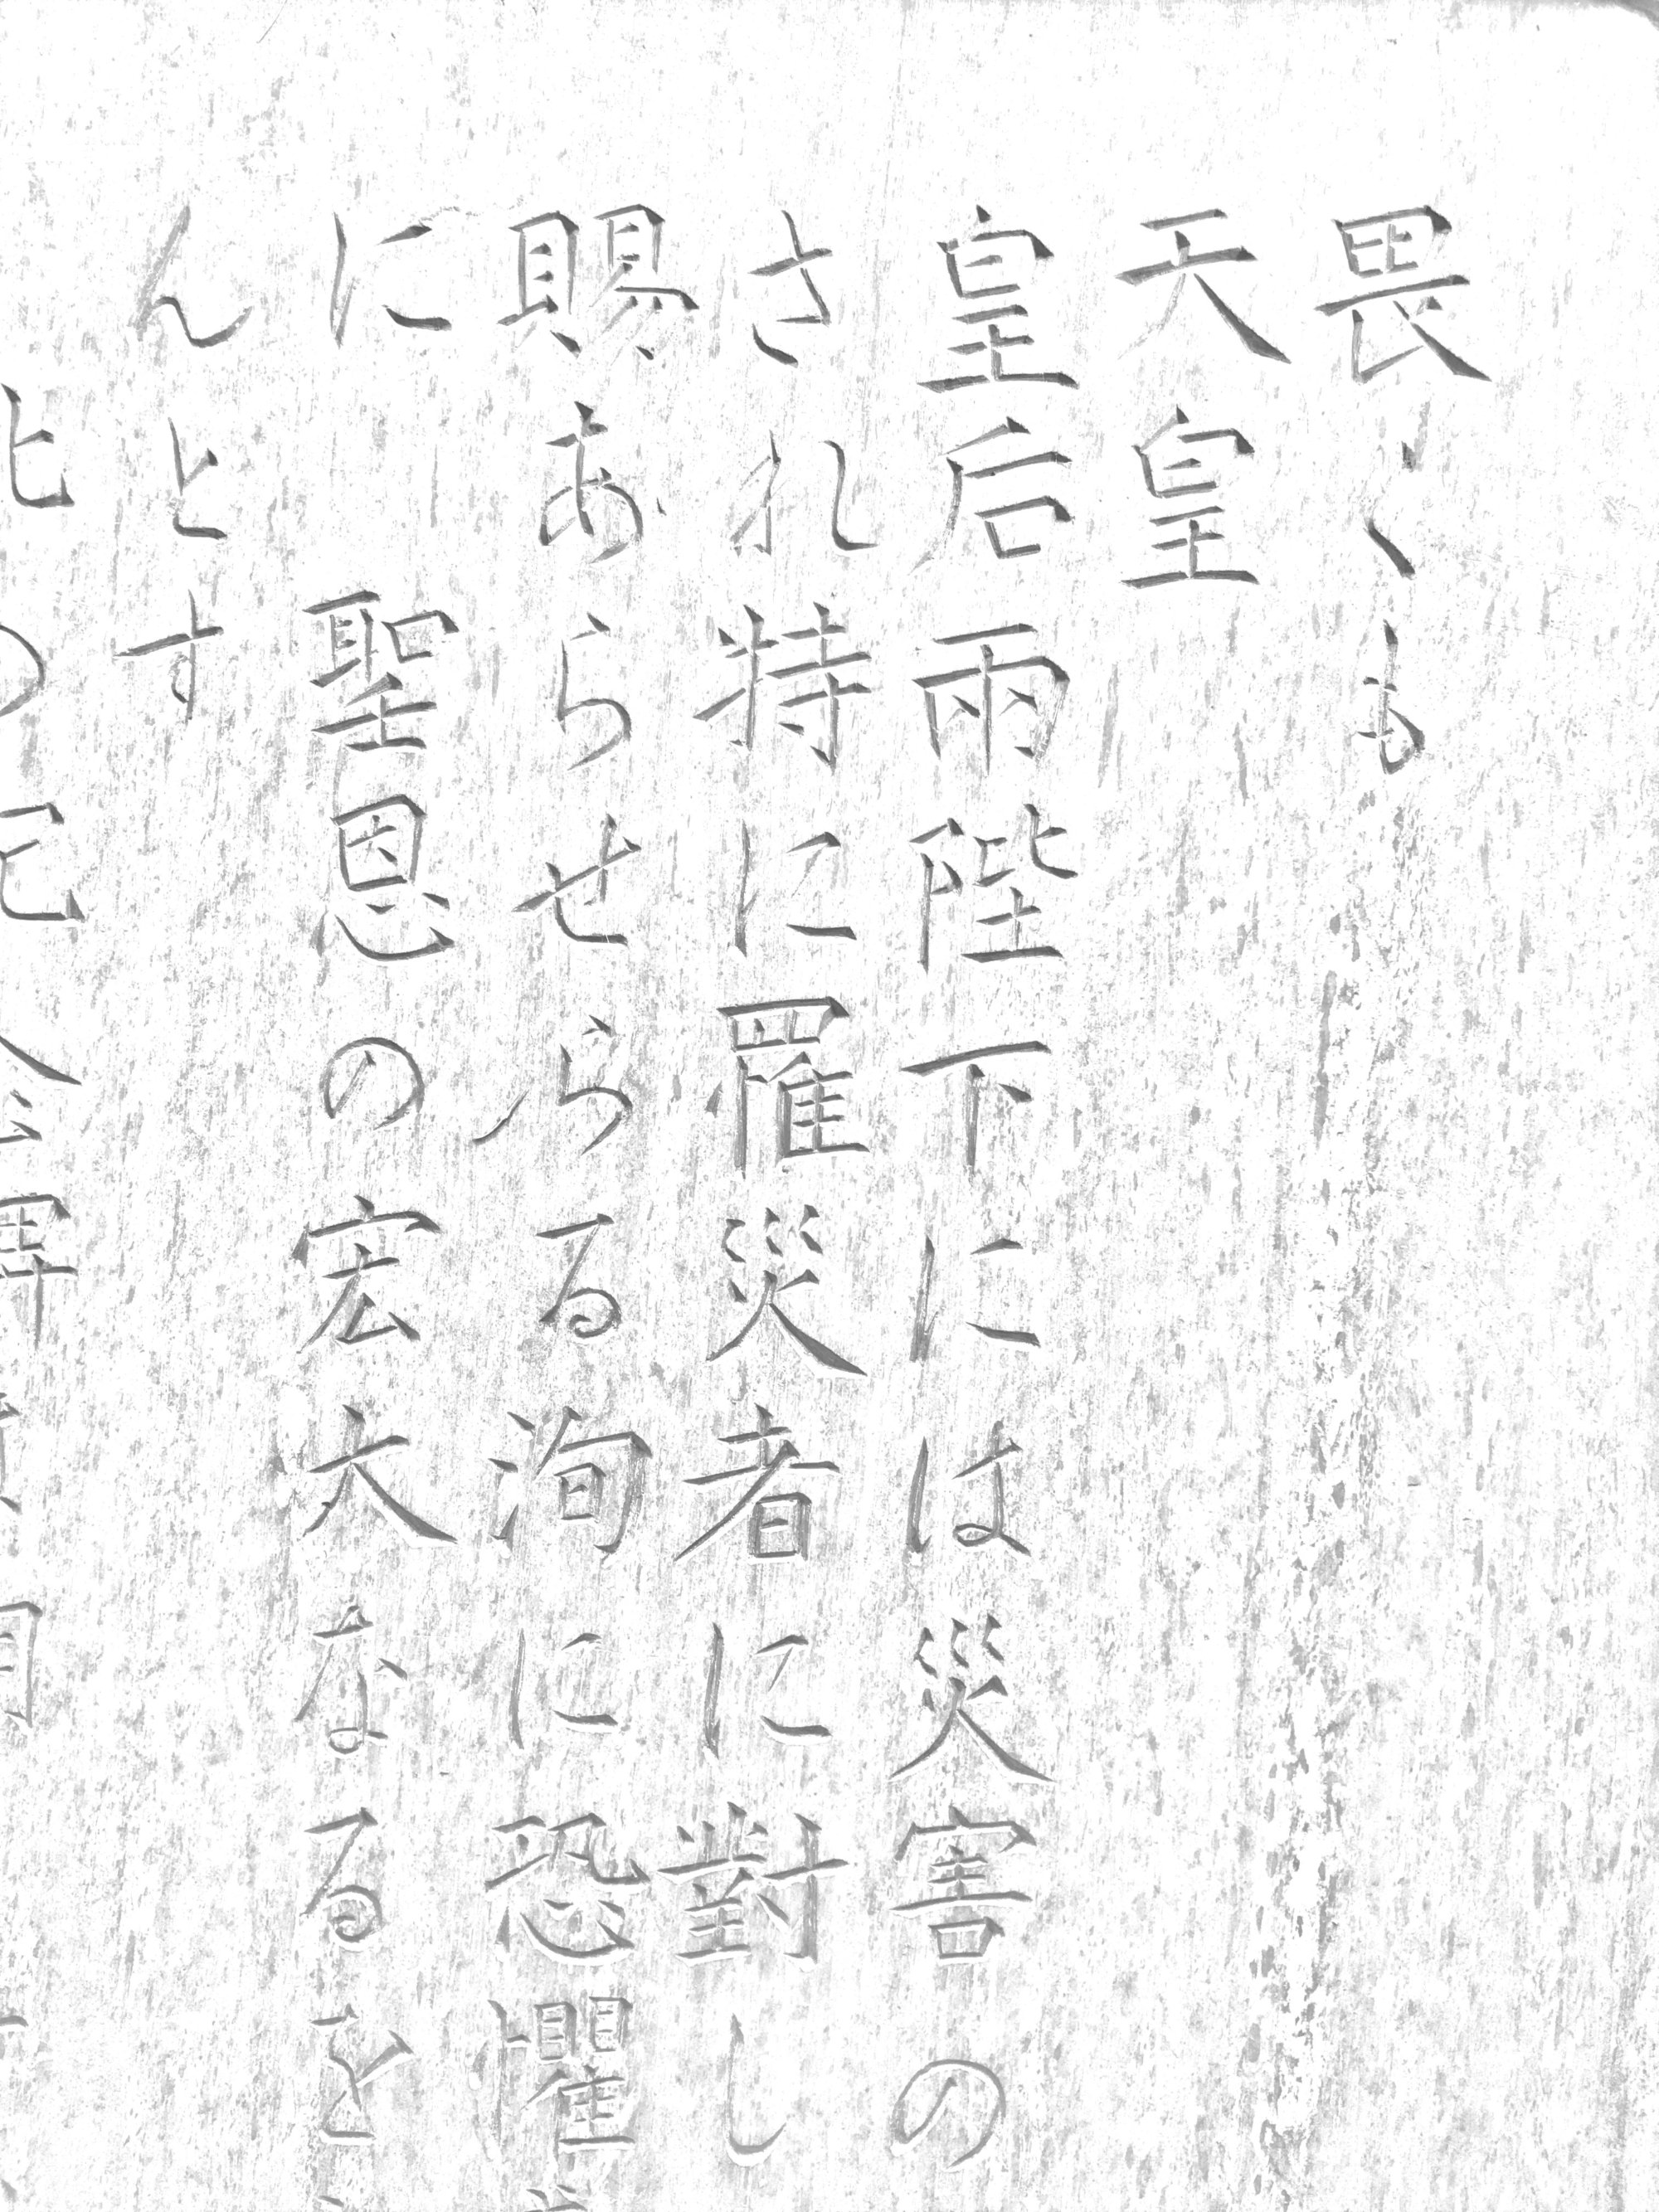 畏くも
天皇
皇后兩陛下には災害の
され特に罹災者に對し
賜あらせらる洵に恐懼
に　聖恩の宏大なるを
んとす